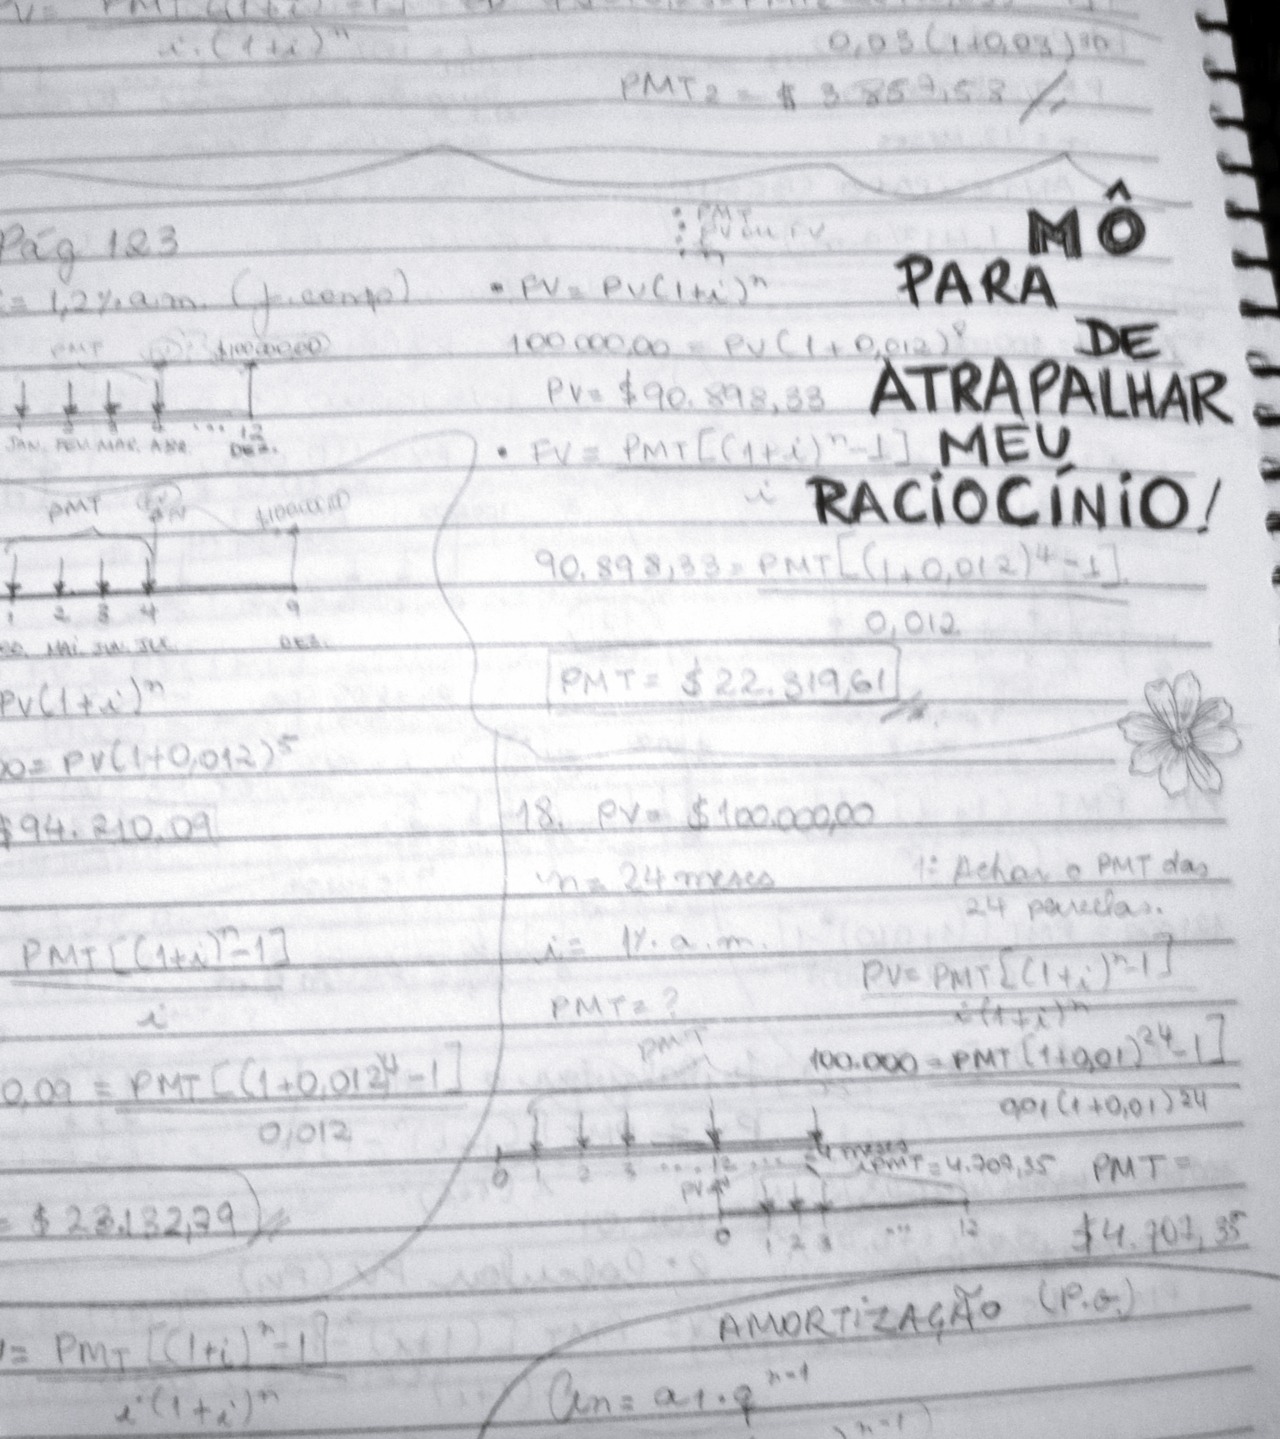 i.(1+i)ⁿ
0,03(1+0,03)
PMT₂ = $ 3.857,53
Pág 123
= 1,2% a.m. (j. comp)
PMT
$100.000,00
JAN. FEV. MAR. ABR. DEZ.
1 2 3 4 ... 12
PMT
1 2 3 4 9
MAI. JUN. JUL. DEZ.
PV(1+i)ⁿ
= PV(1+0,012)⁵
$94.210,09
PMT[(1+i)ⁿ-1]
i
0,09 = PMT[(1+0,012)⁴-1]
0,012
= $ 23.132,79
= PMT[(1+i)ⁿ-1]
i(1+i)ⁿ
• PMT
• PV ou FV
• n
• PV = PV(1+i)ⁿ
100.000,00 = PV(1+0,012)⁸
PV = $90.898,33
• FV = PMT[(1+i)ⁿ-1]
i
90.898,33 = PMT[(1+0,012)⁴-1]
0,012
PMT = $ 22.319,61
MÔ
PARA
DE
ATRAPALHAR
MEU
RACIOCÍNIO!
18. PV = $100.000,00
n = 24 meses
i = 1% a.m.
PMT = ?
1: Achar o PMT das
24 parcelas.
PV = PMT[(1+i)ⁿ-1]
i(1+i)ⁿ
100.000 = PMT[(1+0,01)²⁴-1]
0,01(1+0,01)²⁴
PMT
0 1 2 3 ... 12 ...
meses
PMT = 4.707,35
PMT =
$4.707,35
PV
0 1 2 3 ... 12
AMORTIZAÇÃO (P.G.)
an = a1.qⁿ⁻¹